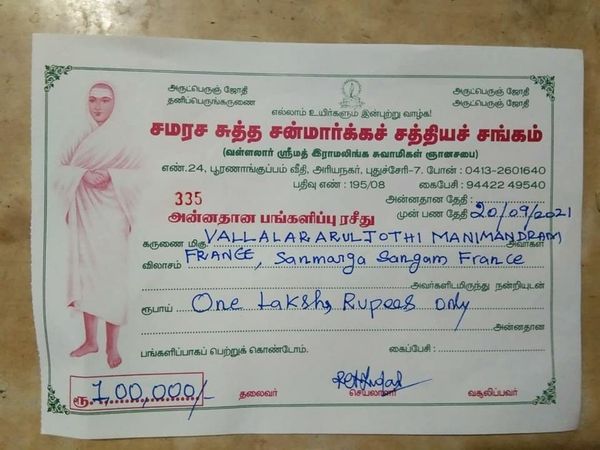 அருட்பெருஞ் ஜோதி அருட்பெருஞ் ஜோதி
தனிபெருங்கருணை அருட்பெருஞ் ஜோதி
எல்லாம் உயிர்களும் இன்புற்று வாழ்க!
சமரச சுத்த சன்மார்க்கச் சத்தியச் சங்கம்
(வள்ளலார் ஸ்ரீமத் இராமலிங்க சுவாமிகள் ஞானசபை)
எண்.24, பூரணாங்குப்பம் வீதி, அரியநகர், புதுச்சேரி-7. போன் : 0413-2601640
பதிவு எண் : 195/08 கைபேசி : 94422 49540
335 அன்னதான தேதி :
அன்னதான பங்களிப்பு ரசீது முன் பண தேதி 20/09/2021
கருணை மிகு VALLALAR ARUL JOTHI MANIMANDRAM அவர்கள்
விலாசம் FRANCE, Sanmarga Sangam France
அவர்களிடமிருந்து நன்றியுடன்
ரூபாய் One Lakshs Rupees only
அன்னதான
பங்களிப்பாகப் பெற்றுக் கொண்டோம். கைப்பேசி :
ரூ. 1,00,000/-
தலைவர் செயலாளர் வசூலிப்பவர்